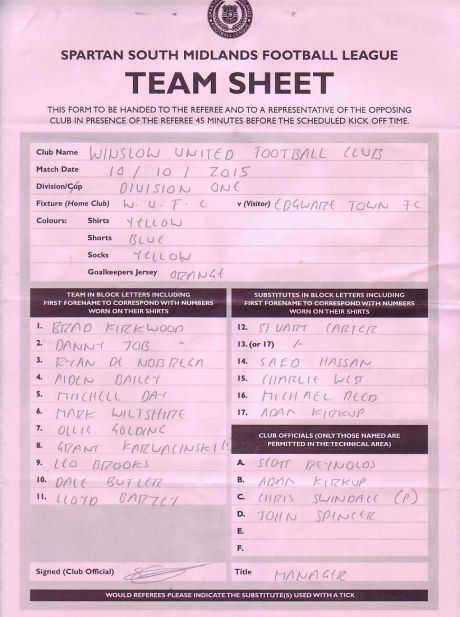 SPARTAN SOUTH MIDLANDS FOOTBALL LEAGUE
TEAM SHEET
THIS FORM TO BE HANDED TO THE REFEREE AND TO A REPRESENTATIVE OF THE OPPOSING
CLUB IN PRESENCE OF THE REFEREE 45 MINUTES BEFORE THE SCHEDULED KICK OFF TIME.
Club Name WINSLOW UNITED FOOTBALL CLUB
Match Date 10/10/2015
Division/Cup DIVISION ONE
Fixture (Home Club) W. U. F. C v (Visitor) EDGWARE TOWN FC
Colours: Shirts YELLOW
Shorts BLUE
Socks YELLOW
Goalkeepers Jersey ORANGE
TEAM IN BLOCK LETTERS INCLUDING
FIRST FORENAME TO CORRESPOND WITH NUMBERS
WORN ON THEIR SHIRTS
1. BRAD KIRKWOOD
2. DANNY JOB
3. RYAN DE NOBREGA
4. AIDEN BAILEY
5. MITCHELL DAY
6. MARK WILTSHIRE
7. OLLIE GOLDING
8. GRANT KARWACINSKI
9. LEO BROOKS
10. DALE BUTLER
11. LLOYD
SUBSTITUTES IN BLOCK LETTERS INCLUDING
FIRST FORENAME TO CORRESPOND WITH NUMBERS
WORN ON THEIR SHIRTS
12. STUART CARTER
13. (or 17)
14. SAED HASSAN
15. CHARLIE WEST
16. MICHAEL REED
17. ADAM KIRKUP
CLUB OFFICIALS (ONLY THOSE NAMED ARE
PERMITTED IN THE TECHNICAL AREA)
A. SCOTT REYNOLDS
B. ADAM KIRKUP
C. CHRIS SWINDALE (P)
D. JOHN SPENCER
E.
F.
Signed (Club Official) Title MANAGER
WOULD REFEREES PLEASE INDICATE THE SUBSTITUTE(S) USED WITH A TICK